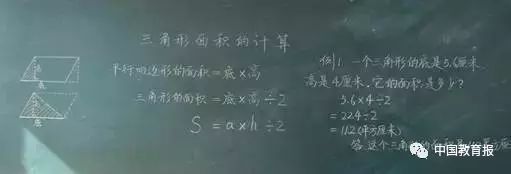 三角形面积的计算
平行四边形的面积=底×高
三角形的面积=底×高÷2
S=a×h÷2
高
底
高
底
例1.一个三角形的底是5.6厘米
高是4厘米.它的面积是多少?
5.6×4÷2
=22.4÷2
=11.2(平方厘米)
答:这个三角形的面积是
中国教育报